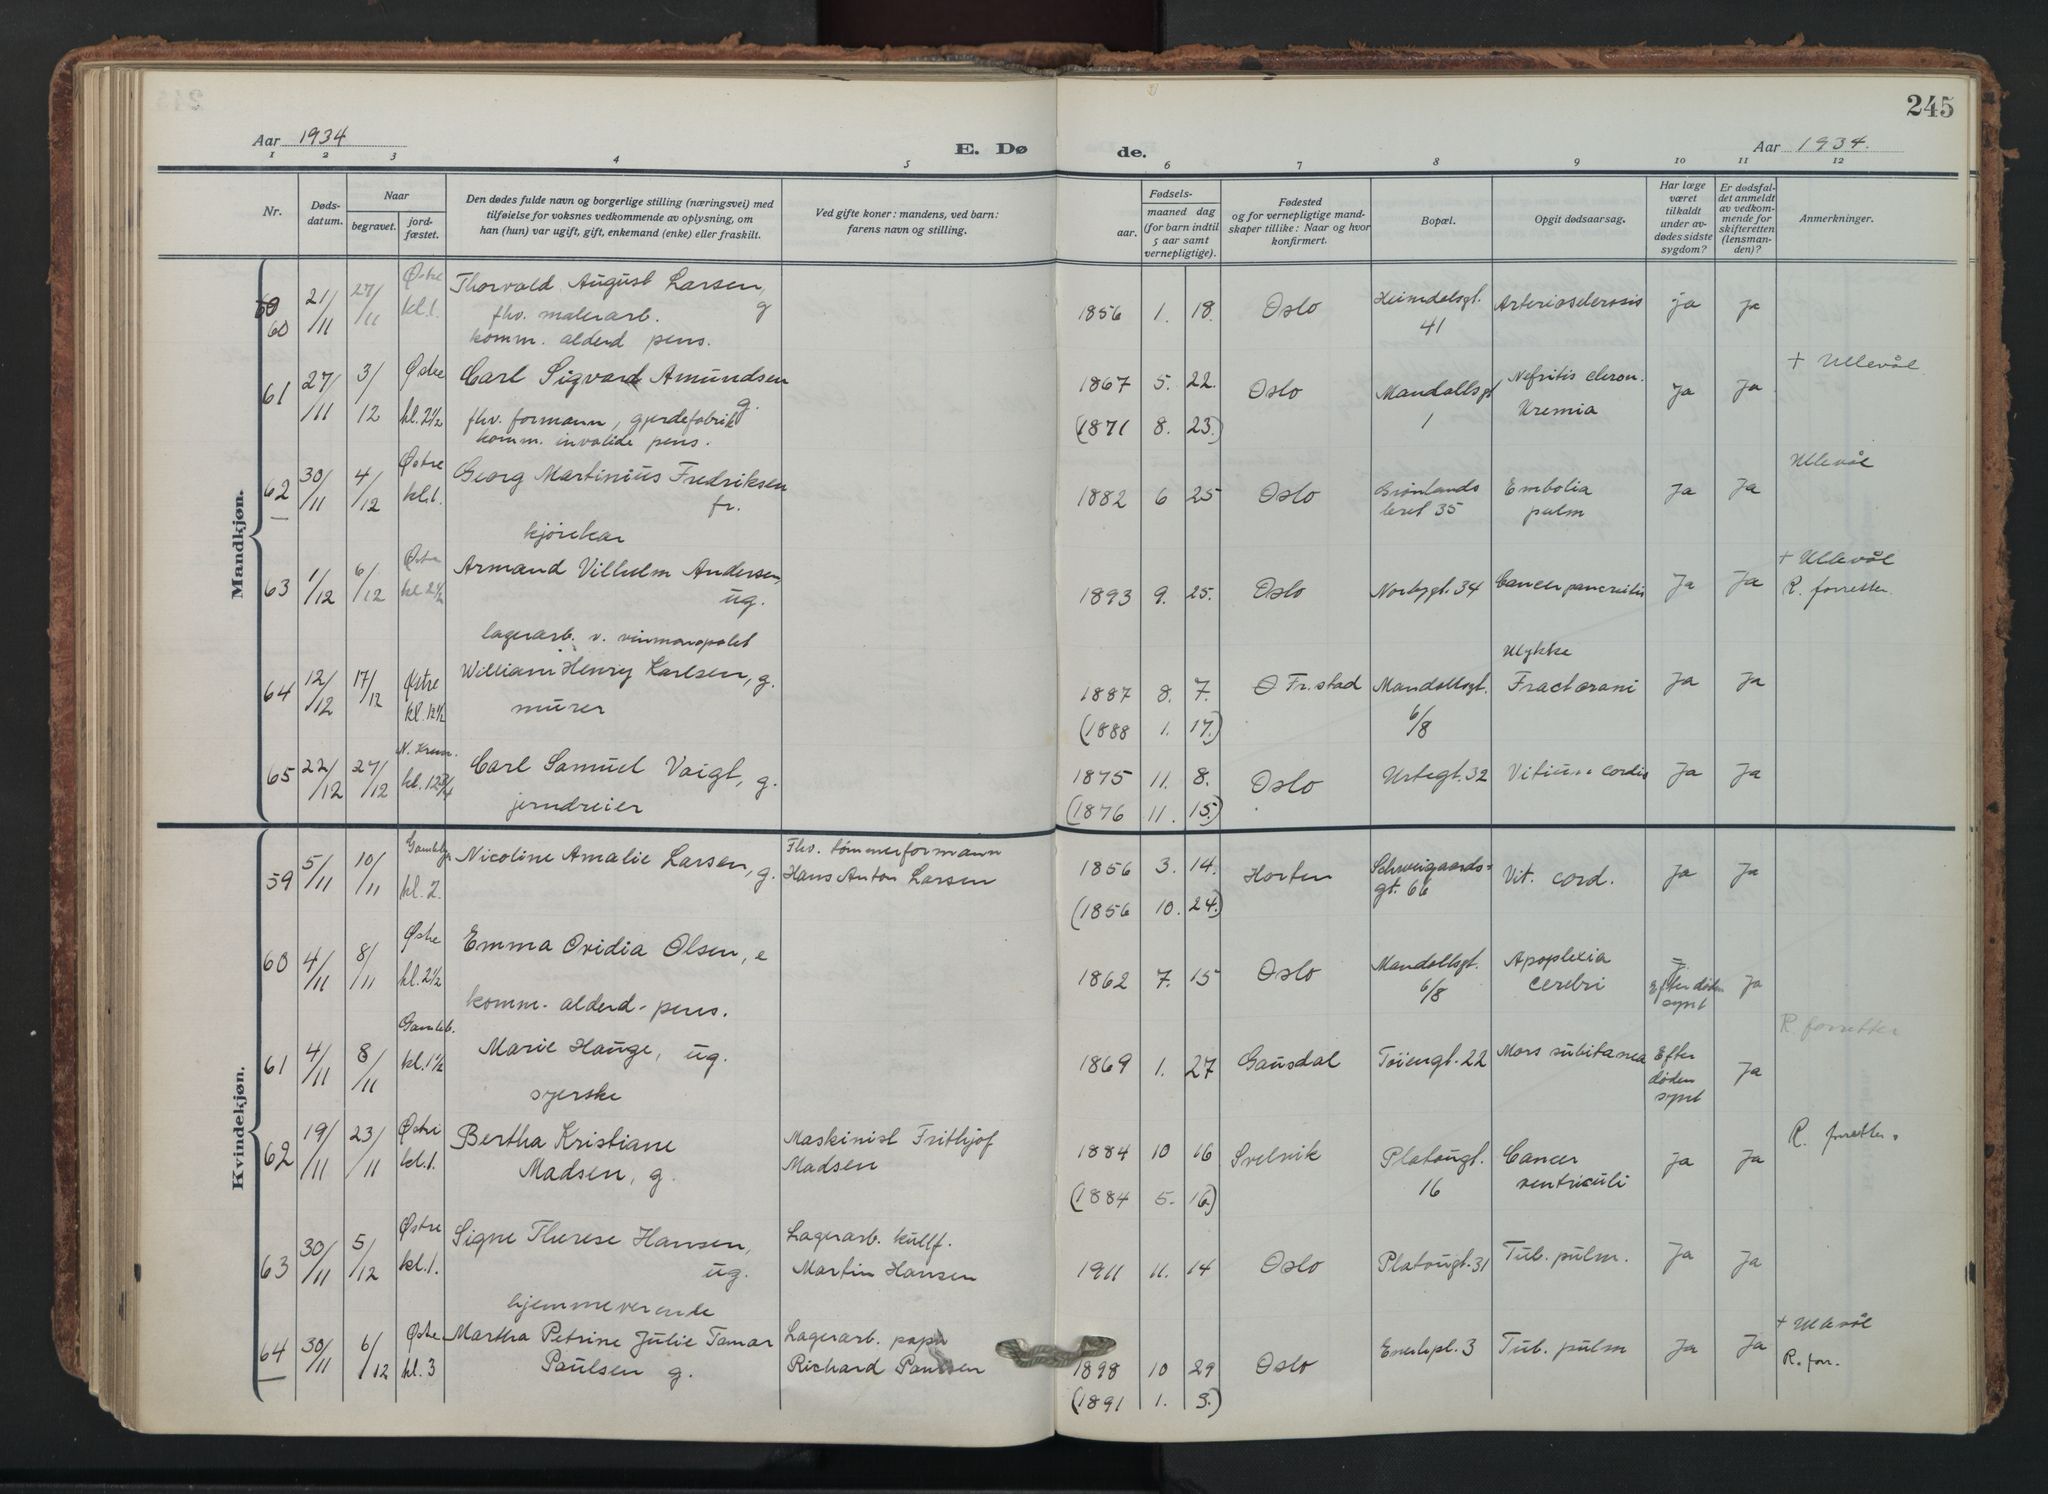 245
Aar 1934
E. Dø
de.
Aar 1934.
1 2 3 4 5 6 7 8 9 10 11 12
Nr.
Døds-
datum.
Naar
begravet.
jord-
fæstet.
Den dødes fulde navn og borgerlige stilling (næringsvei) med
tilføielse for voksnes vedkommende av oplysning, om
han (hun) var ugift, gift, enkemand (enke) eller fraskilt.
Ved gifte koner: mandens, ved barn:
farens navn og stilling.
Fødsels-
aar.
maaned dag
(for barn indtil
5 aar samt
vernepligtige).
Fødested
og for vernepligtige mand-
skaper tillike: Naar og hvor
konfirmert.
Bopæl.
Opgit dødsaarsag.
Har læge
været
tilkaldt
under av-
dødes sidste
sygdom?
Er dødsfal-
det anmeldt
av vedkom-
mende for
skifteretten
(lensman-
den)?
Anmerkninger.
Mandkjøn.
60 21/11 27/11 Østre kl. 1. Thorvald August Larsen, g 1856 1. 18. Oslo Heimdalsgt. 41 Arteriosclerosis ja Ja
fhv. malerarb.
komm. alderd pens.
61 27/11 3/12 Østre kl. 2 1/2 Carl Sigvard Amundsen g. 1867 5. 22. Oslo Mandallsgt 1 Nefritis chron. Uremia Ja Ja + Ullevål
fhv. formann, gjerdefabrik (1871 8. 23.)
komm. invalide pens.
62 30/11 4/12 Østre kl. 1. Georg Martinius Fredriksen fr. 1882 6 25 Oslo Grønlands leret 35 Embolia pulm Ja Ja Ullevål
kjørekar
63 1/12 6/12 Østre kl 2 1/2 Armand Vilhelm Andersen, ug. 1893 9. 25. Oslo Norbygt. 34 Cancer pancreitis Ja Ja + Ullevål R. forretter.
lagerarb. v. vinmonopolet
64 12/12 17/12 Østre kl. 12 1/2 William Henry Karlsen, g. 1887 8. 7. Fr.stad Mandallsgt. 6/8 Ulykke Fract. crani Ja Ja
murer (1888 1. 17.)
65 22/12 27/12 N. Krem. kl. 12 3/4 Carl Samuel Voigt, g. 1875 11. 8. Oslo Urtegt. 32 Vitium cordis Ja Ja
jerndreier (1876 11. 15.)
Kvindekjøn.
59 5/11 10/11 Gamleby kl. 2. Nicoline Amalie Larsen, g. Fhv. tømmerformann Hans Anton Larsen 1856 3. 14. Horten Schweigaards- gt. 66 Vit. cord. Ja Ja
(1856 10. 24.)
60 4/11 8/11 Østre kl. 2 1/2 Emma Ovidia Olsen, e 1862 7. 15 Oslo Mandallsgt. 6/8 Apoplexia cerebri Efter døden synt Ja
komm. alderd. pens.
61 4/11 8/11 Gamleb. kl. 1 1/2 Marie Hauge, ug. 1869 1. 27 Gausdal Tøiengt. 22 Mors subitanea Efter døden synt Ja R. forretter
syerske
62 19/11 23/11 Østre kl. 1. Bertha Kristiane Madsen, g. Maskinist Frithjof Madsen 1884 10 16 Svelvik Platougt. 16 Cancer ventriculi Ja Ja R. forretter.
(1884 5. 16.)
63 30/11 5/12 Østre kl. 1. Signe Therese Hansen, ug. Lagerarb. kullf. Martin Hansen 1911 11. 14 Oslo Platougt. 31 Tub. pulm. Ja Ja
hjemmeværende
64 30/11 6/12 Østre kl. 3 Martha Petrine Julie Tamar Paulsen g. Lagerarb. papir Richard Paulsen 1898 10 29 Oslo Enerhpl. 3 Tub. pulm Ja Ja + Ullevål R. forr.
(1891 1. 3.)